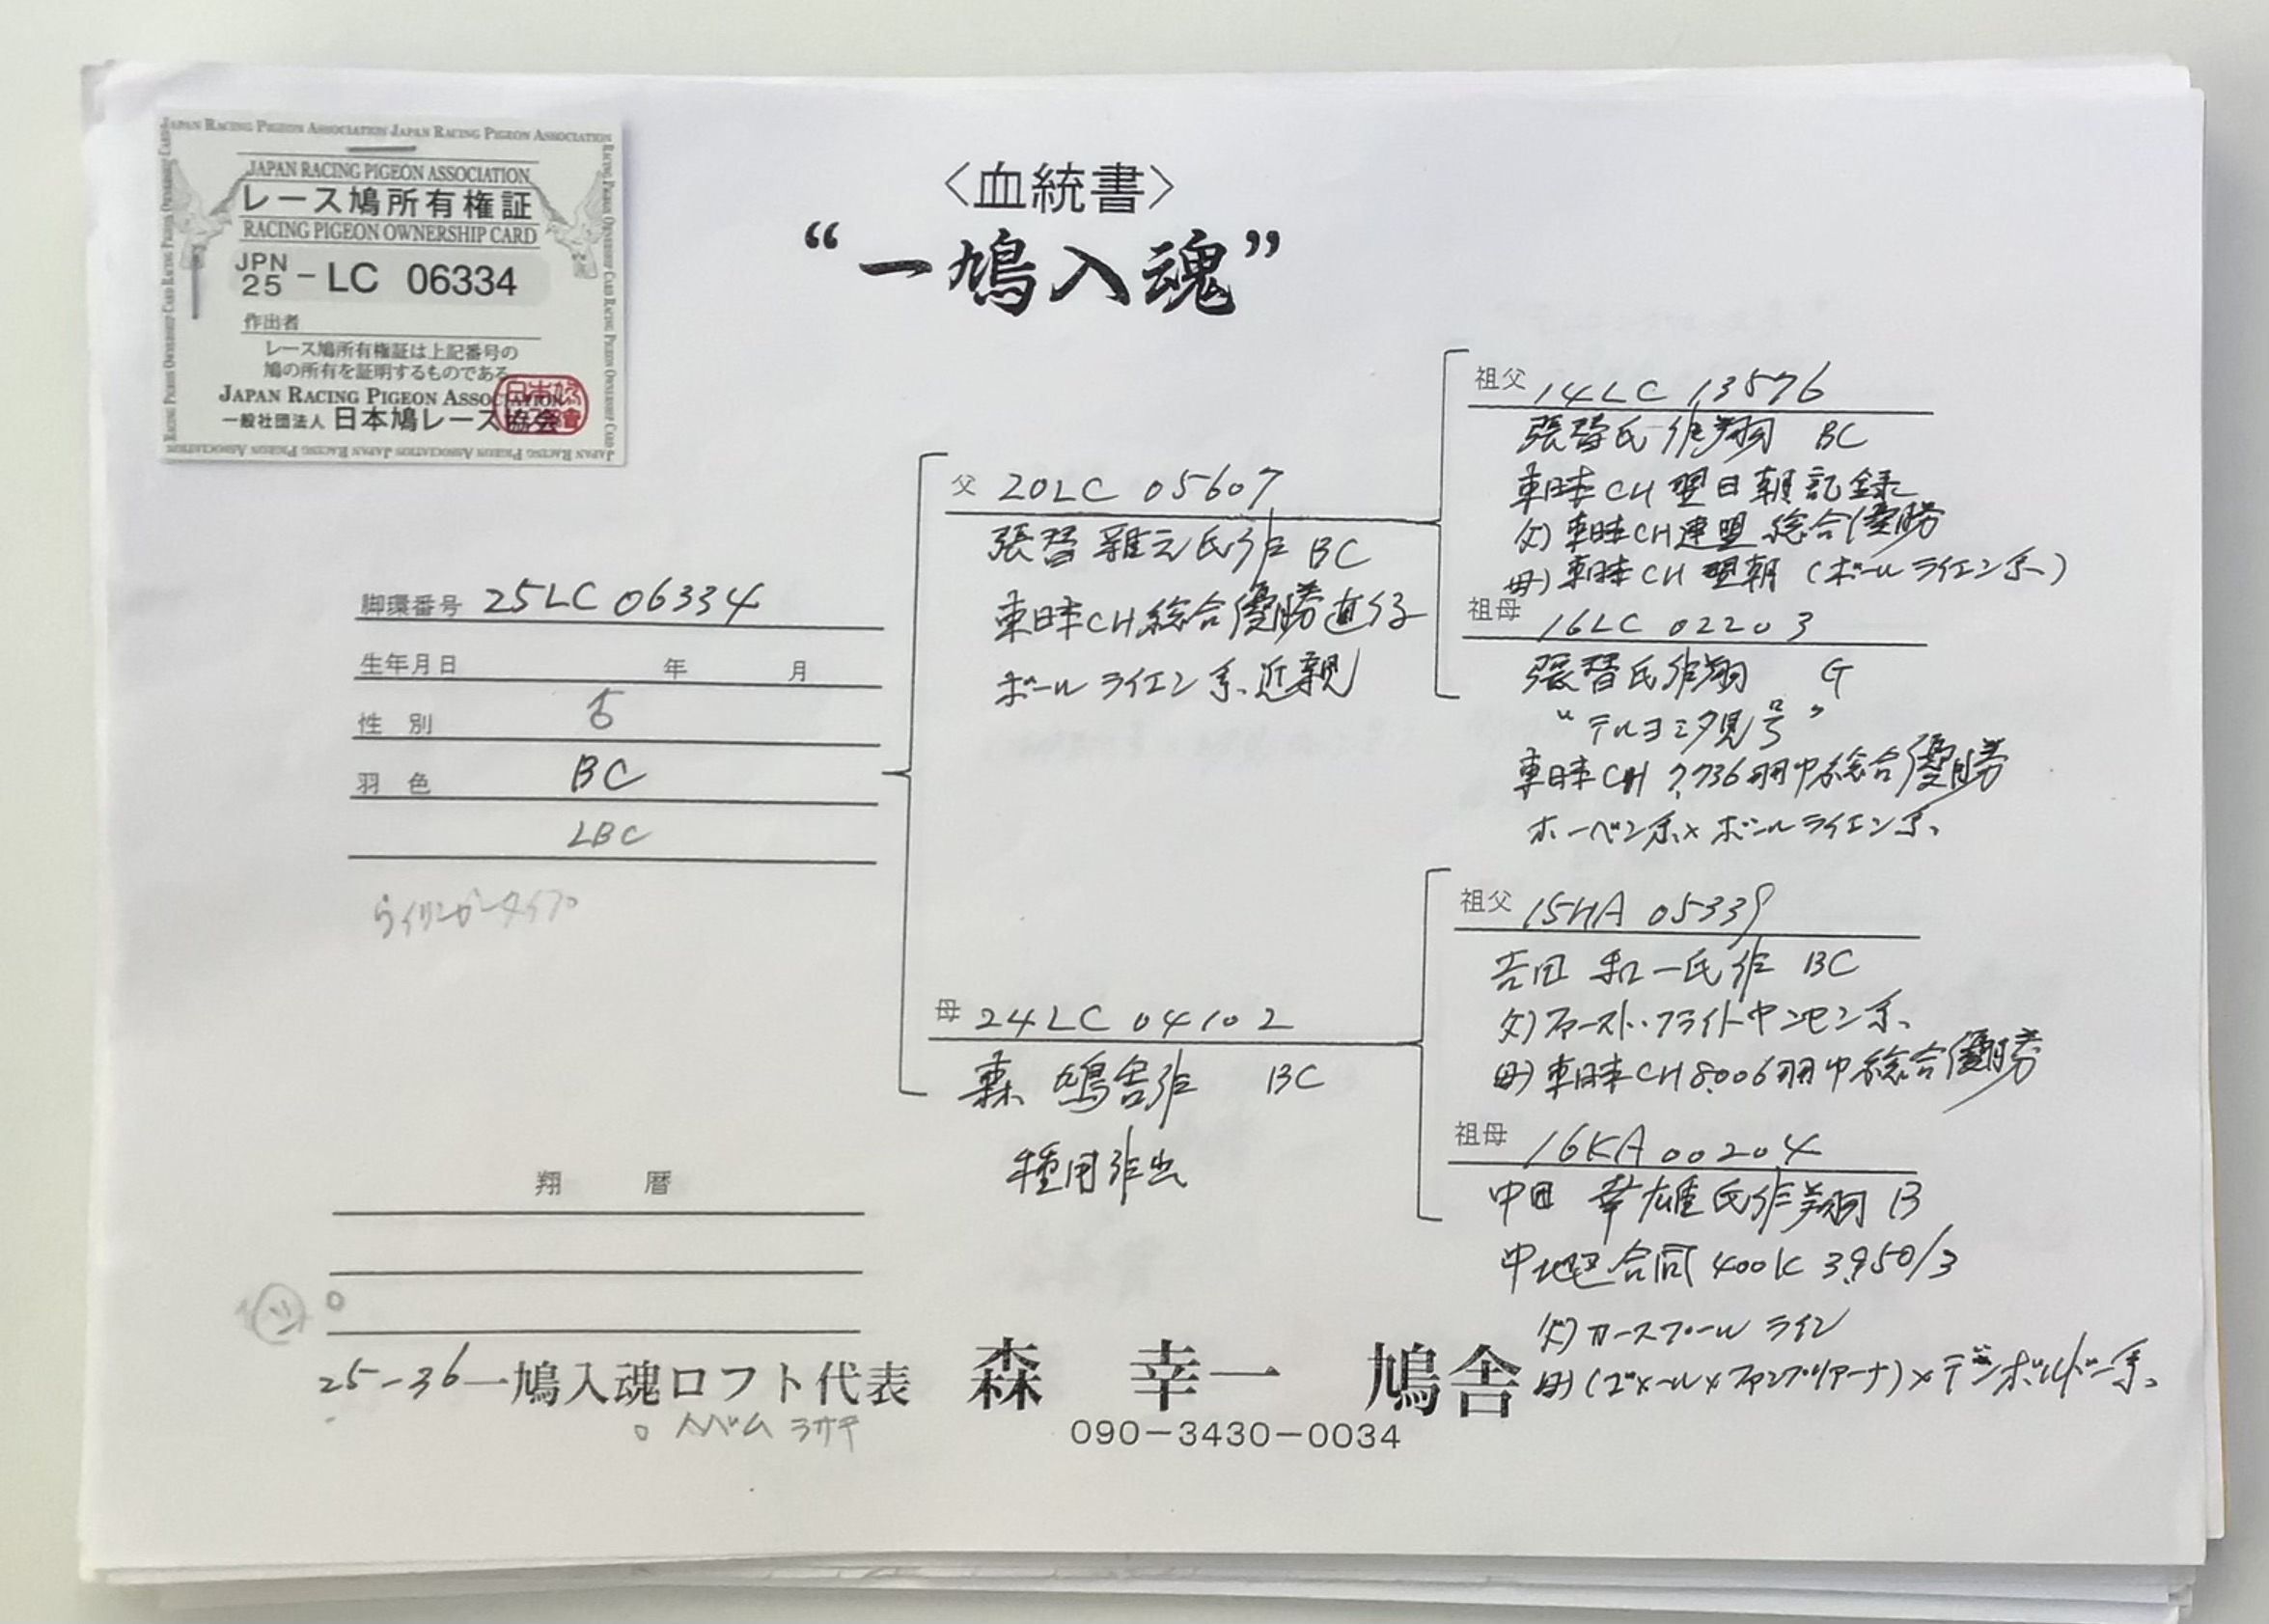 JAPAN RACING PIGEON ASSOCIATION JAPAN RACING PIGEON ASSOCIATION
JAPAN RACING PIGEON ASSOCIATION
レース鳩所有権証
RACING PIGEON OWNERSHIP CARD
JPN 25 - LC 06334
作出者
レース鳩所有権証は上記番号の
鳩の所有を証明するものである
JAPAN RACING PIGEON ASSOCIATION
一般社団法人 日本鳩レース協会
〈血統書〉
“一鳩入魂”
脚環番号 25LC 06334
生年月日 年 月
性 別 ♂
羽 色 BC
LBC
父 20LC 05607
張替 雅之氏作 BC
東日本CH総合優勝直仔
ポールライエン系近親
母 24LC 04102
森 鳩舎作 BC
種用作出
祖父 14LC 13576
張替氏作翔 BC
東日本CH翌日朝記録
父)東日本CH連盟総合優勝
母)東日本CH翌朝(ポールライエン系)
祖母 16LC 02203
張替氏作翔 G
“テルヨミタ見号”
東日本CH 7,736羽中総合優勝
ホーベン系×ポールライエン系
祖父 15HA 05339
吉田 和一氏作 BC
父)ファースト・フライトヤンセン系
母)東日本CH8,006羽中総合優勝
祖母 16KA 00204
中田 幸雄氏作翔 B
中地区合同400K 3,950/3
父)カースプールライン
母)(ゴメール×ファンブリアーナ)×デンボルドー系
翔 暦
25-36
一鳩入魂ロフト代表 森 幸一 鳩舎
090-3430-0034